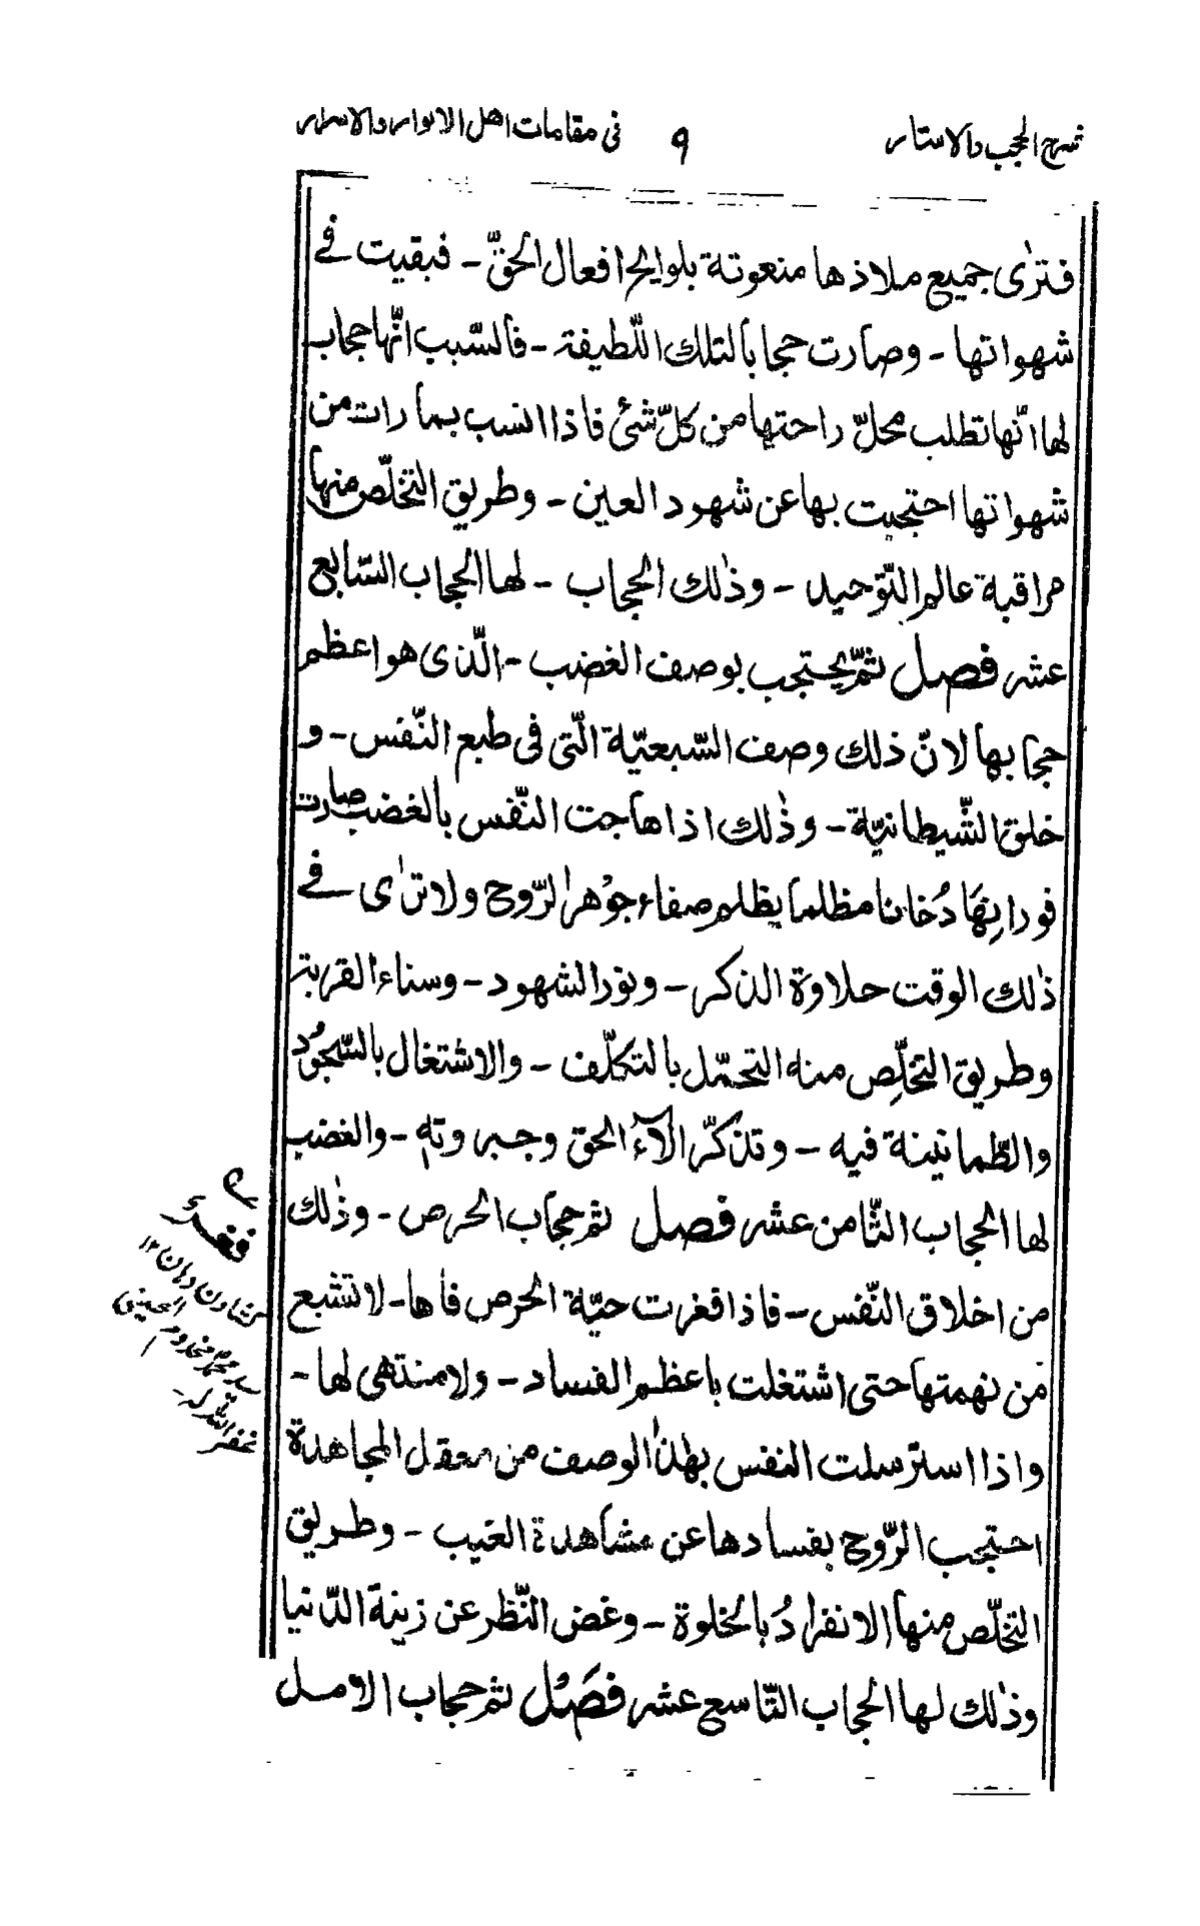 شرح الحجب والاستار ٩ فی مقامات اهل الانوار والاسرار
فترٰی جمیع ملاذها منعوتة بلوایح افعال الحقّ ـ فبقیت فے
شهواتها ـ وصارت حجابا لتلك اللّطیفة ـ فالسّبب انّها حجاب
لها انّها تطلب محلّ راحتها من كلّ شئ فاذا انسب بما رات من
شهواتها احتجبت بها عن شهود العین ـ وطریق التخلّص منها
مراقبة عالم التّوحید ـ وذٰلك الحجاب ـ لها الحجاب السّابع
عشر فصل ثمّ یحتجب بوصف الغضب ـ الّذی هو اعظم
حجابها لانّ ذلك وصف السّبعیّة الّتی فی طبع النّفس ـ و
خلق الشّیطانیّة ـ وذٰلك اذا هاجت النّفس بالغضب صارت
فورانِهَا دُخانا مظلما یظلم صفاء جوْهر الرّوح ولا ترٰی فے
ذٰلك الوقت حلاوة الذكر ـ ونور الشهود ـ وسناء القربة
وطریق التخلّصِ منه التحمّل بالتكلّف ـ والاشتغال بالسّجوُد
والطّمانینة فیه ـ وتذكّر اٰلآء الحق وجبروته ـ والغضب
لها الحجاب الثّامن عشر فصل ثم حجاب الحرص ـ وذٰلك
من اخلاق النّفس ـ فاذا فغرت حیّة الحرص فاها ـ لا تشبع
من نهمتها حتی اشتغلت باعظم الفساد ـ ولا منتهی لها ـ
واذا استرسلت النفس بهٰذا الوصف من معقل المجاهدة
احتجب الرّوح بفسادها عن مشاهدة الغیب ـ وطریق
التخلّص منها الانفرادُ بالخلوة ـ وغض النّظر عن زینة الدّنیا
وذٰلك لها الحجاب التّاسع عشر فصَلْ ثم حجاب الامل
فغر
دهان ١٢
سید محمد مخدوم الحسینی
غفر اللّٰه له ـ